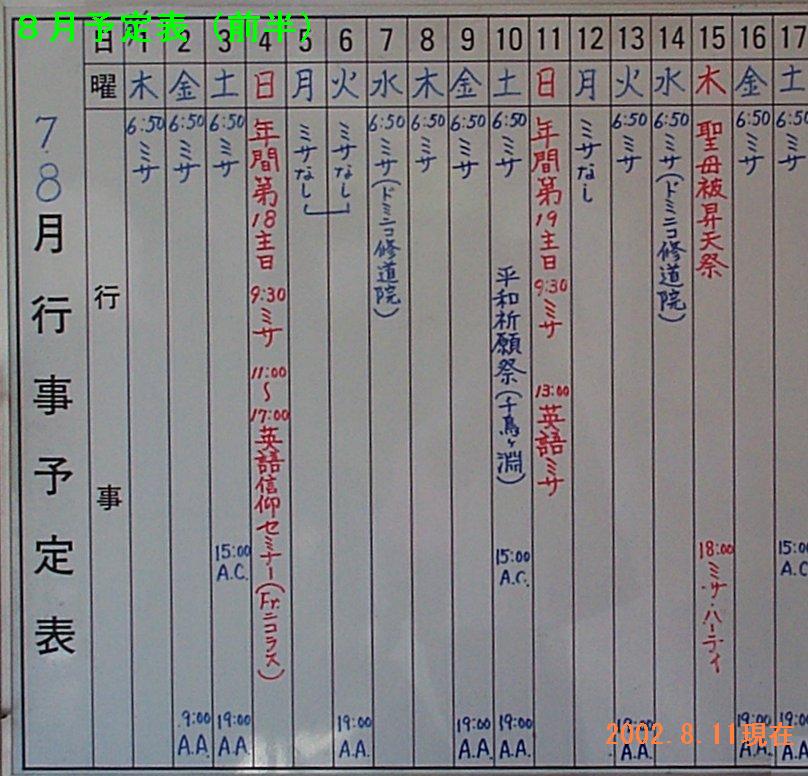 8月予定表（前半）
日 1 2 3 4 5 6 7 8 9 10 11 12 13 14 15 16 17
曜 木 金 土 日 月 火 水 木 金 土 日 月 火 水 木 金 土
7.8月行事予定表
行事
6:50 ミサ
6:50 ミサ
9:00 A.A.
6:50 ミサ
15:00 A.C.
19:00 A.A.
年間第18主日
9:30 ミサ
11:00〜17:00 英語信仰セミナー(Fr.ニコラス)
ミサなし
ミサなし
19:00 A.A.
6:50 ミサ(ドミニコ修道院)
6:50 ミサ
6:50 ミサ
19:00 A.A.
6:50 ミサ
平和祈願祭(千鳥ヶ淵)
15:00 A.C.
19:00 A.A.
年間第19主日
9:30 ミサ
13:00 英語ミサ
ミサなし
6:50 ミサ
19:00 A.A.
6:50 ミサ(ドミニコ修道院)
聖母被昇天祭
18:00 ミサ・パーティ
6:50 ミサ
19:00 A.A.
6:50 ミサ
15:00 A.C.
19:00 A.A.
2002.8.11現在